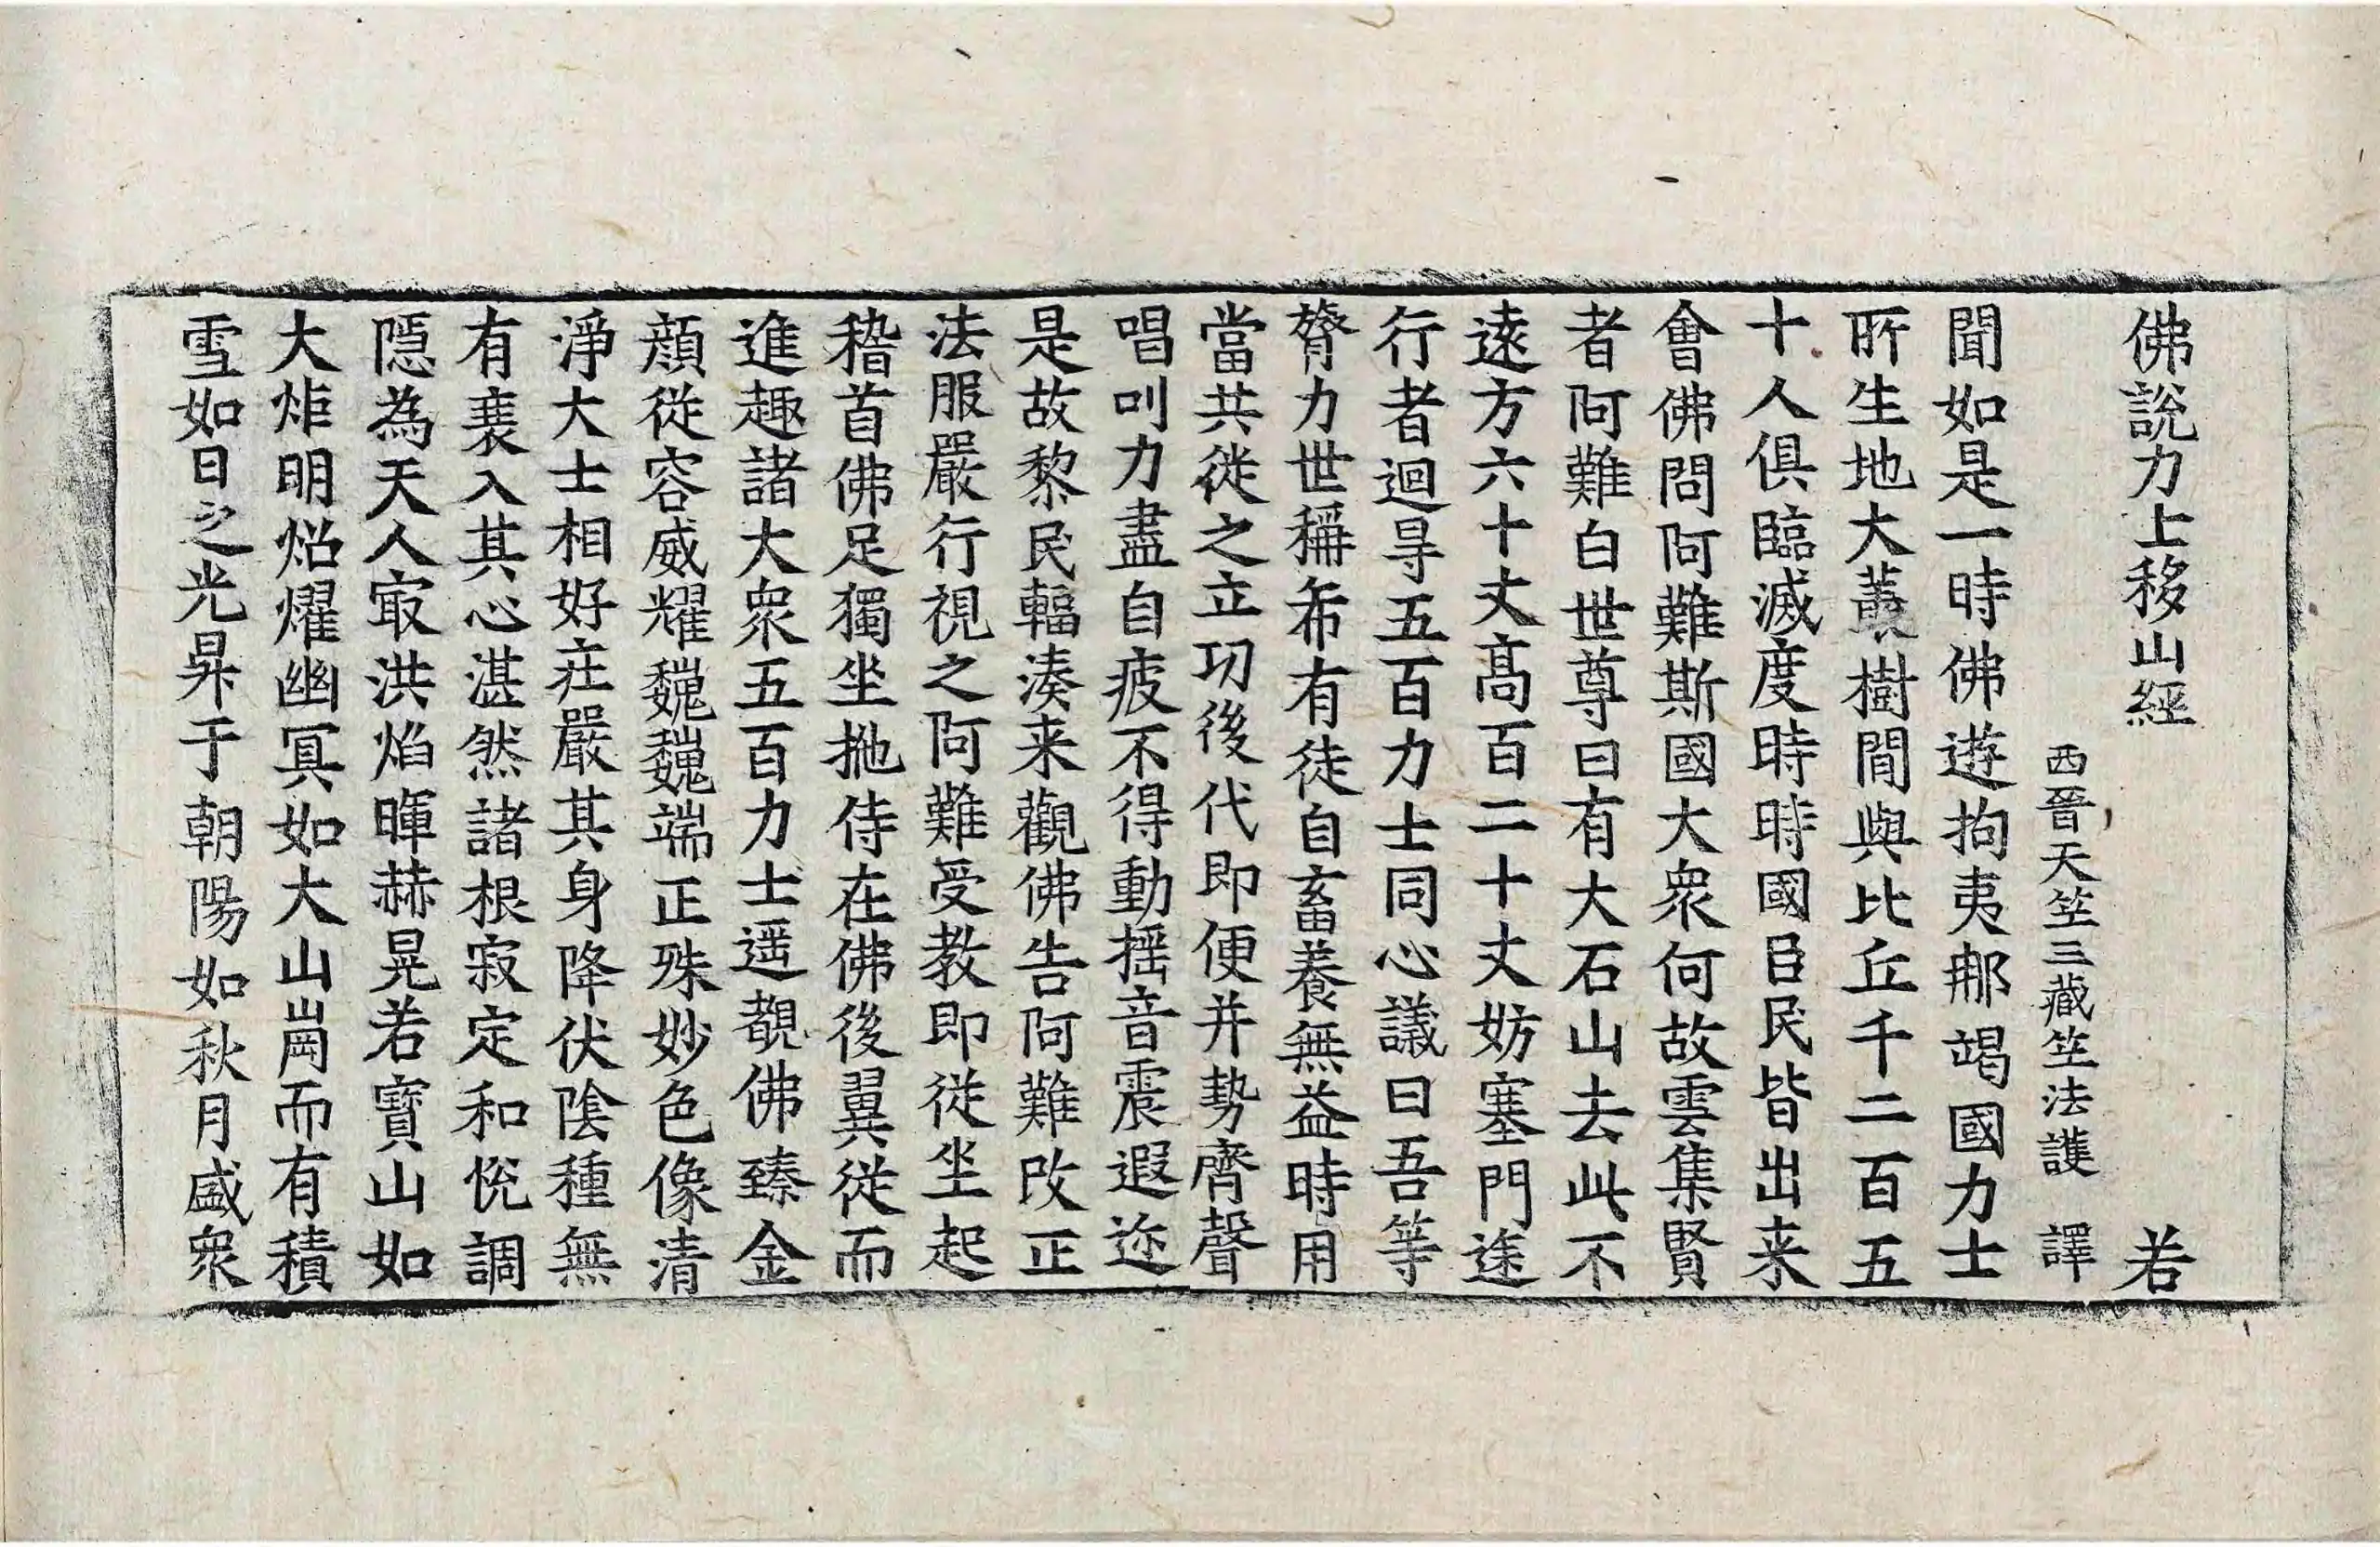 佛說力士移山經　若
西晉天竺三藏竺法護　譯
聞如是一時佛遊拘夷那竭國力士
所生地大叢樹間與比丘千二百五
十人俱臨滅度時時國臣民皆出来
會佛問阿難斯國大衆何故雲集賢
者阿難白世尊曰有大石山去此不
遠方六十丈高百二十丈妨塞門途
行者迴㝵五百力士同心議曰吾等
膂力世稱希有徒自畜養無益時用
當共徙之立功後代即便并勢齊聲
唱叫力盡自疲不得動揺音震遐迩
是故黎民輻湊来觀佛告阿難改正
法服嚴行視之阿難受教即從坐起
稽首佛足獨坐拖侍在佛後翼從而
進趣諸大衆五百力士遥覩佛臻金
顏從容威耀巍巍端正殊妙色像清
淨大士相好莊嚴其身降伏陰種無
有衰入其心湛然諸根寂定和悅調
隱為天人㝡洪焰暉赫晃若寶山如
大炬明炤燿幽冥如大山崗而有積
雪如日之光昇于朝陽如秋月盛衆